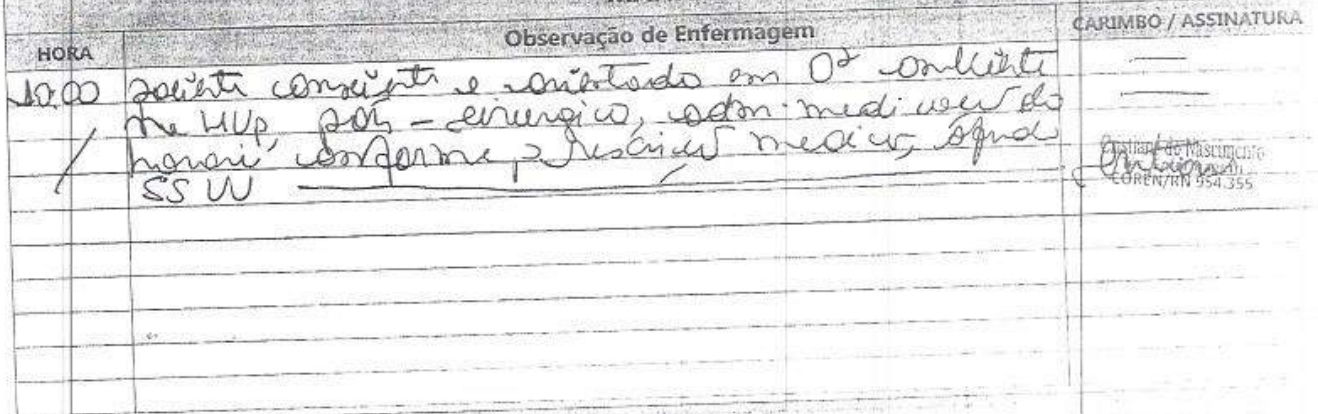 HORA Observação de Enfermagem CARIMBO / ASSINATURA
10:00 paciente consciente e orientado em O² ambiente
me HVP, pós-cirurgico, adm medicação do
horari conforme prescrição medica, segue
SSVV
COREN/RN 954.355